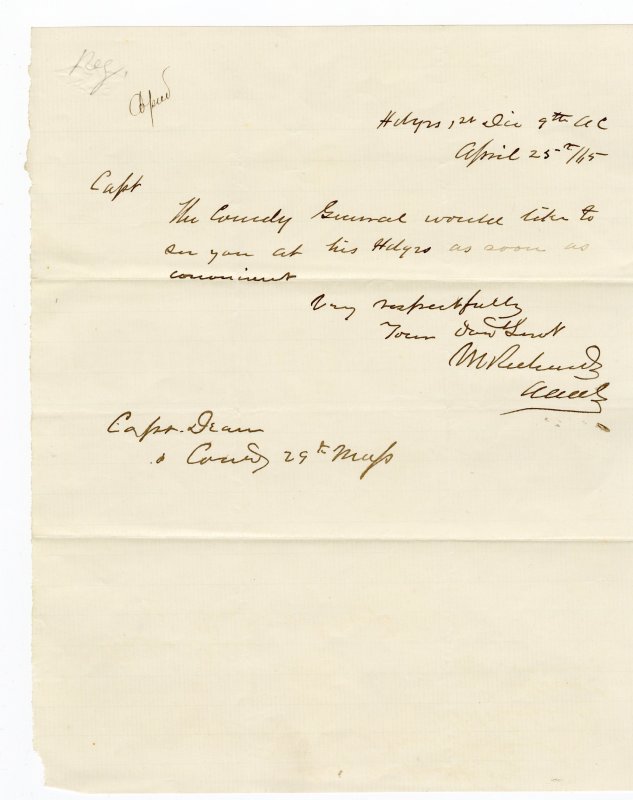 Reg.
Copied
Hdqrs 1st Div 9th AC
April 25th/65
Capt
The Comdg General would like to
see you at his Hdqrs as soon as
convenient
Very respectfully
Your Obd Servt
Richards
AAAG
Capt. Deane
Comdg 29th Mass